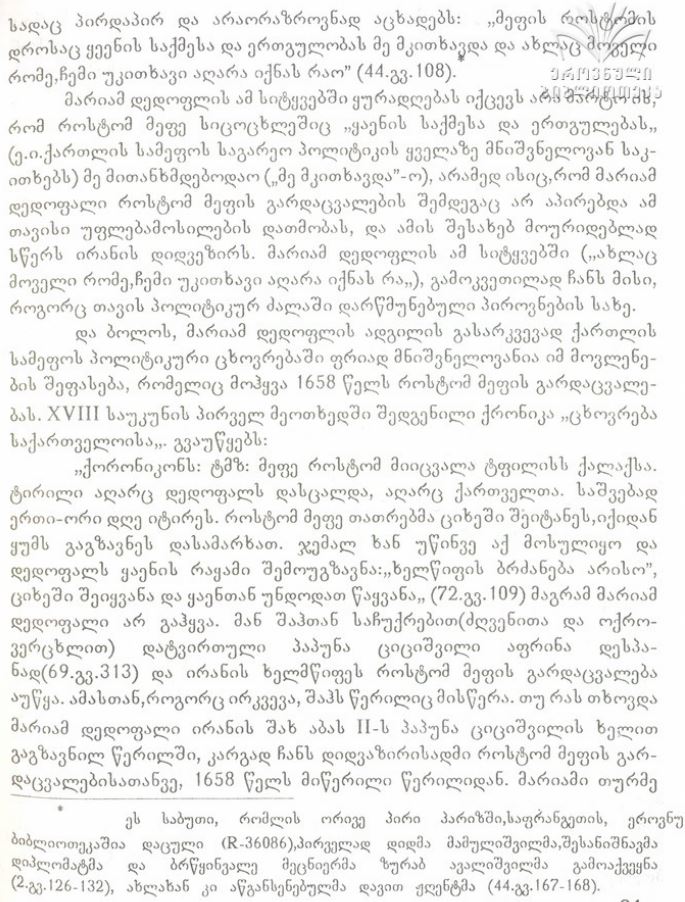 სადაც პირდაპირ და არაორაზროვნად აცხადებს: „მეფის როსტომის
დროსაც ყეენის საქმესა და ერთგულობას მე მკითხავდა და ახლაც მოველი
რომე,ჩემი უკითხავი აღარა იქნას რაო” (44.გვ.108).*
მარიამ დედოფლის ამ სიტყვებში ყურადღებას იქცევს არა მარტო ის,
რომ როსტომ მეფე სიცოცხლეშიც „ყაენის საქმესა და ერთგულებას„
(ე.ი.ქართლის სამეფოს საგარეო პოლიტიკის ყველაზე მნიშვნელოვან საკ-
ითხებს) მე მითანხმდებოდაო („მე მკითხავდა”-ო), არამედ ისიც,რომ მარიამ
დედოფალი როსტომ მეფის გარდაცვალების შემდეგაც არ აპირებდა ამ
თავისი უფლებამოსილების დათმობას, და ამის შესახებ მოურიდებლად
სწერს ირანის დიდვეზირს. მარიამ დედოფლის ამ სიტყვებში („ახლაც
მოველი რომე,ჩემი უკითხავი აღარა იქნას რა„), გამოკვეთილად ჩანს მისი,
როგორც თავის პოლიტიკურ ძალაში დარწმუნებული პიროვნების სახე.
და ბოლოს, მარიამ დედოფლის ადგილის გასარკვევად ქართლის
სამეფოს პოლიტიკური ცხოვრებაში ფრიად მნიშვნელოვანია იმ მოვლენე-
ბის შეფასება, რომელიც მოჰყვა 1658 წელს როსტომ მეფის გარდაცვალე-
ბას. XVIII საუკუნის პირველ მეოთხედში შედგენილი ქრონიკა „ცხოვრება
საქართველოისა„. გვაუწყებს:
„ქორონიკონს: ტმზ: მეფე როსტომ მიიცვალა ტფილისს ქალაქსა.
ტირილი აღარც დედოფალს დასცალდა, აღარც ქართველთა. საშვებად
ერთი-ორი დღე იტირეს. როსტომ მეფე თათრებმა ციხეში შეიტანეს,იქიდან
ყუმს გაგზავნეს დასამარხათ. ჯემალ ხან უწინვე აქ მოსულიყო და
დედოფალს ყაენის რაყამი შემოუგზავნა:„ხელწიფის ბრძანება არისო”,
ციხეში შეიყვანა და ყაენთან უნდოდათ წაყვანა„ (72.გვ.109) მაგრამ მარიამ
დედოფალი არ გაჰყვა. მან შაჰთან საჩუქრებით(ძღვენითა და ოქრო-
ვერცხლით) დატვირთული პაპუნა ციციშვილი აფრინა დესპა-
ნად(69.გვ.313) და ირანის ხელმწიფეს როსტომ მეფის გარდაცვალება
აუწყა. ამასთან,როგორც ირკვევა, შაჰს წერილიც მისწერა. თუ რას თხოვდა
მარიამ დედოფალი ირანის შახ აბას II-ს პაპუნა ციციშვილის ხელით
გაგზავნილ წერილში, კარგად ჩანს დიდვაზირისადმი როსტომ მეფის გარ-
დაცვალებისათანვე, 1658 წელს მიწერილი წერილიდან. მარიამი თურმე
* ეს საბუთი, რომლის ორივე პირი პარიზში,საფრანგეთის, ეროვნუ
ბიბლიოთეკაშია დაცული (R-36086),პირველად დიდმა მამულიშვილმა,შესანიშნავმა
დიპლომატმა და ბრწყინვალე მეცნიერმა ზურაბ ავალიშვილმა გამოაქვეყნა
(2.გვ.126-132), ახლახან კი აწგანსენებულმა დავით ჟღენტმა (44.გვ.167-168).
ეროვნული
ბიბლიოთეკა